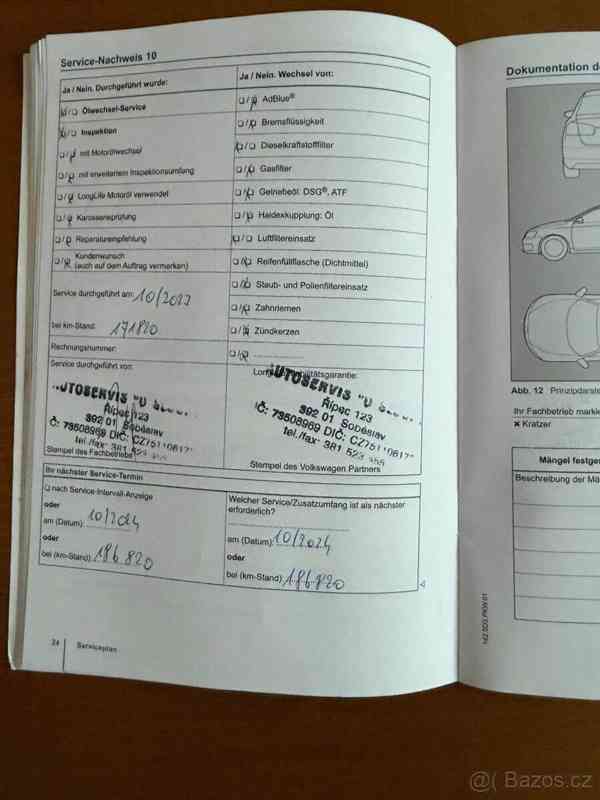 Service-Nachweis 10
Ja / Nein. Durchgeführt wurde:
Ölwechsel-Service
Inspektion
mit Motorölwechsel
mit erweitertem Inspektionsumfang
LongLife Motoröl verwendet
Karosserieprüfung
Reparaturempfehlung
Kundenwunsch
(auch auf dem Auftrag vermerken)
Service durchgeführt am: 10/2023
bei km-Stand: 171820
Rechnungsnummer:
Service durchgeführt von:
AUTOSERVIS "U
Řípec 123
392 01 Soběslav
Č: 73508969 DIČ: CZ75110617
tel./fax: 381 523
Stempel des Fachbetriebs
Ja / Nein. Wechsel von:
AdBlue®
Bremsflüssigkeit
Dieselkraftstofffilter
Gasfilter
Getriebeöl: DSG®, ATF
Haldexkupplung: Öl
Luftfiltereinsatz
Reifenfüllflasche (Dichtmittel)
Staub- und Pollenfiltereinsatz
Zahnriemen
Zündkerzen
AUTOSERVIS "U
Řípec 123
392 01 Soběslav
IČ: 73508969 DIČ: CZ75110617
tel./fax: 381 523
Stempel des Volkswagen Partners
Ihr nächster Service-Termin
nach Service-Intervall-Anzeige
oder
am (Datum): 10/2024
oder
bei (km-Stand): 186 820
Welcher Service/Zusatzumfang ist als nächster
erforderlich?
am (Datum): 10/2024
oder
bei (km-Stand): 186 820
24
Serviceplan
Dokumentation
Abb. 12
Ihr Fachbetrieb
× Kratzer
Beschreibung der